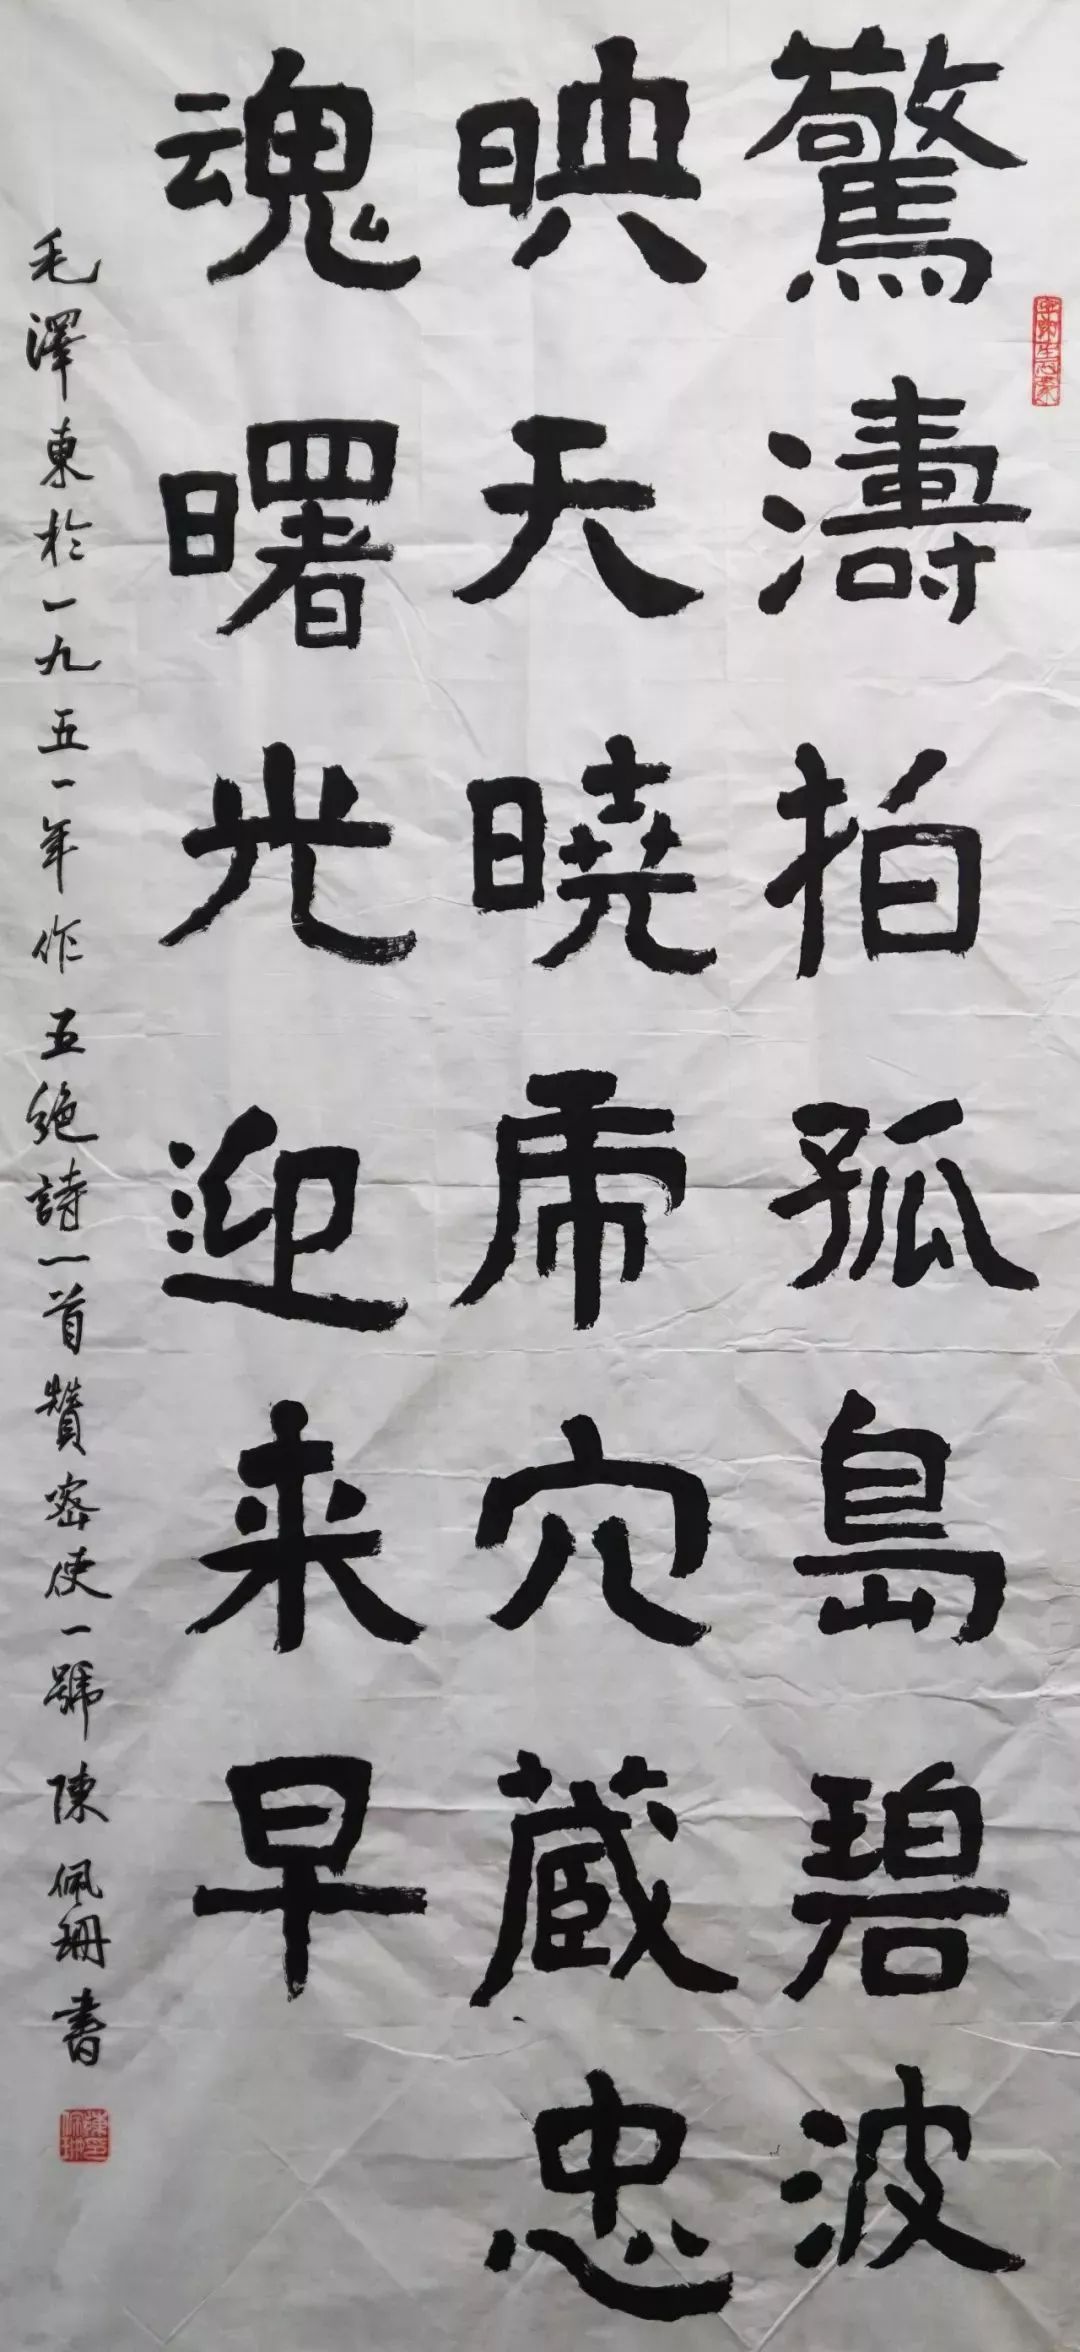 驚濤拍孤島碧波
映天曉虎穴藏忠
魂曙光迎来早
毛澤東於一九五一年作五絶詩一首贊密使一號陳佩珊書